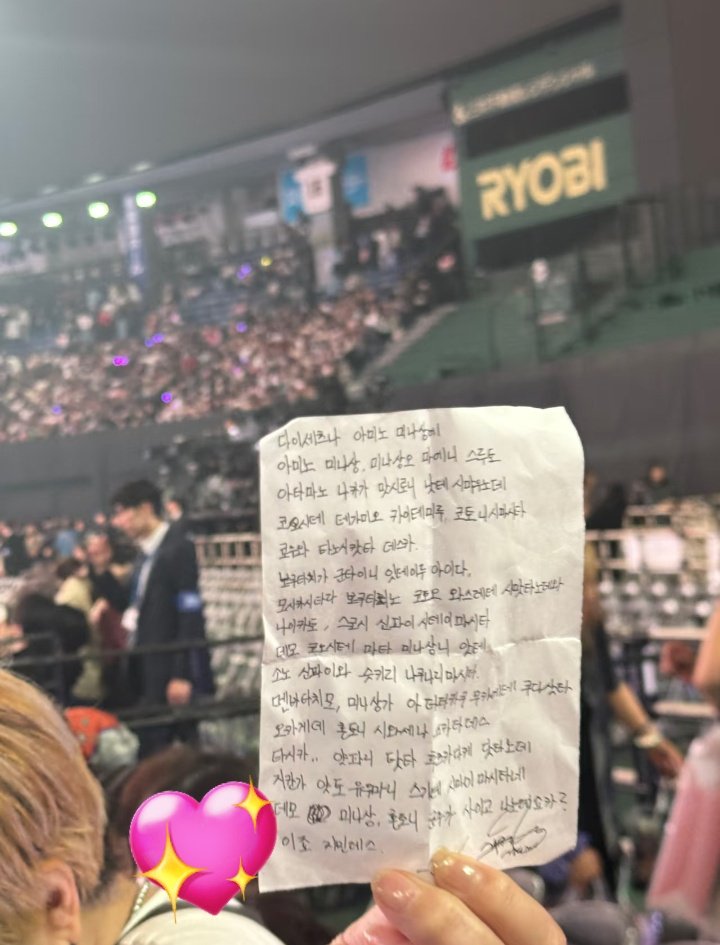 RYOBI
다이세츠나 아미노 미나상에
아미노 미나상, 미나상오 마에니 스루토
아타마노 나카가 맛시로니 낫테 시마우노데
코오시테 테가미오 카이테미루 코토니시마시타
쿄우와 타노시캇타 데스카.
보쿠타치가 군타이니 잇테이루 아이다,
모시카시타라 보쿠타치노 코토오 와스레테 시맛타노데와
나이카토, 스코시 신파이시테이마시타
데모 코오시테 마타 미나상니 앗테
소노 신파이와 슷키리 나쿠나리마시타.
멘바타치모, 미나상가 아타타카쿠 무카에테 쿠다삿타
오카게데 혼토니 시와세나 데스
타시카.. 얏파니 닷타 닷타노데
지칸가 앗토 유우마니 스기테 시마이마시타네
데모 미나상, 혼토니 사이고 나노데쇼카?
이죠 지민데스.